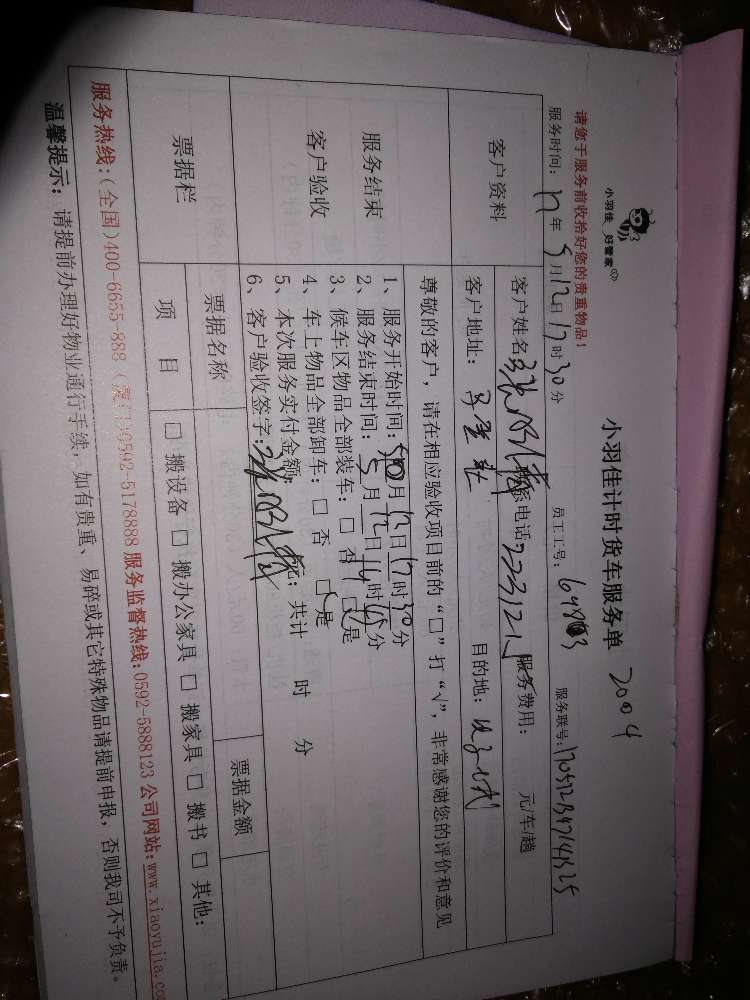 小羽佳 好管家
小羽佳计时货车服务单 2004
请您于服务前收拾好您的贵重物品!
服务时间: 17年 5月12日17时30分 员工工号: 服务联号:
客户资料
客户姓名 电话: 服务费用: 元/车/趟
客户地址: 目的地:
服务结束
客户验收
尊敬的客户,请在相应验收项目前的“□”打“√”,非常感谢您的评价和意见
1、服务开始时间: 月12日17时30分
2、服务结束时间: 5月12日 时 分
3、候车区物品全部装车:□否 是
4、车上物品全部卸车:□否 是
5、本次服务实付金额: 元; 共计 时 分
6、客户验收签字:
票据栏
票据名称 票据金额
项 目 □搬设备 □搬办公家具 □搬家具 □搬书 □其他:
服务热线:(全国)400-6655-888 (厦门)0592-5178888 服务监督热线:0592-5888123 公司网站:www.xiaoyujia.co
温馨提示: 请提前办理好物业通行手续,如有贵重、易碎或其它特殊物品请提前申报,否则我司不予负责。